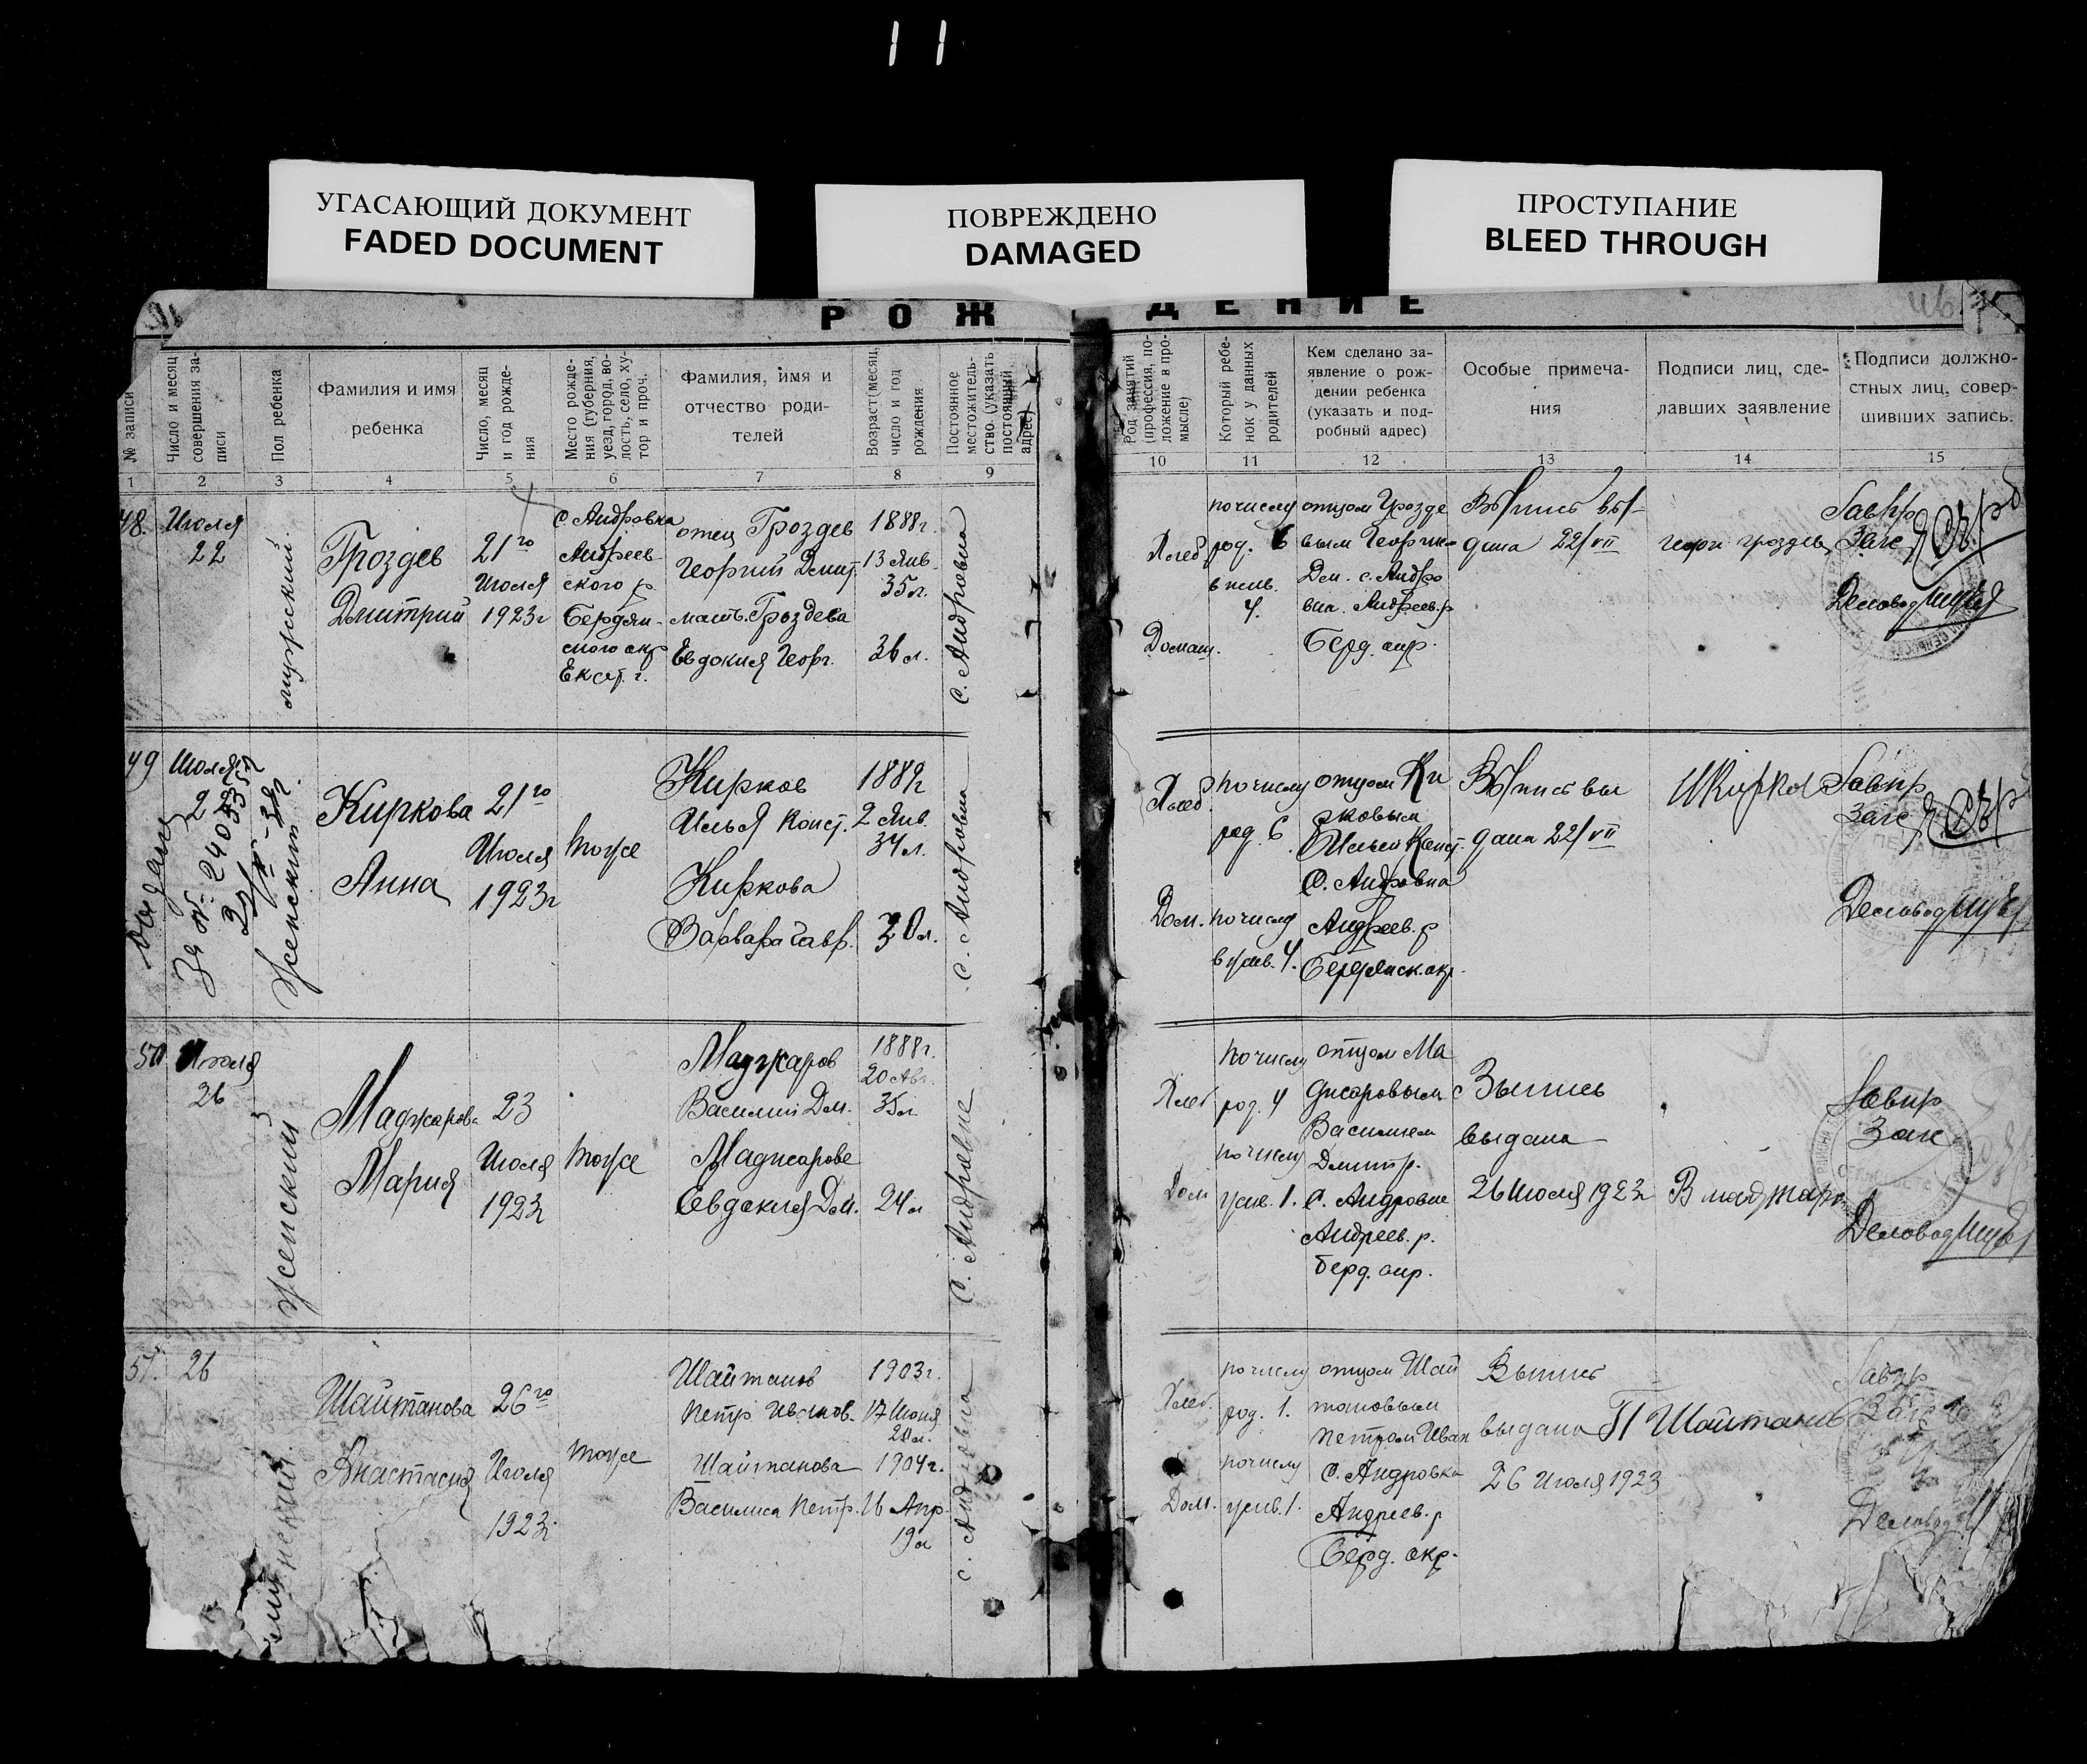 УГАСАЮЩИЙ ДОКУМЕНТ
FADED DOCUMENT
ПОВРЕЖДЕНО
DAMAGED
ПРОСТУПАНИЕ
BLEED THROUGH
РОЖДЕНИЕ
№ записи
Число и месяц совершения записи
Пол ребенка
Фамилия и имя
ребенка
Число, месяц и год рождения
Место рождения (губерния, уезд, город, волость, село, хутор и проч.
Фамилия, имя и
отчество роди-
телей
Возраст (месяц, число и год рождения
Постоянное местожительство. (указать постоянный адрес)
Род занятий (профессия, положение в промысле)
Который ребенок у данных родителей
Кем сделано за-
явление о рож-
дении ребенка
(указать и под-
робный адрес)
Особые примеча-
ния
Подписи лиц, сде-
лавших заявление
Подписи должно-
стных лиц, совер-
шивших запись.
1 2 3 4 5 6 7 8 9 10 11 12 13 14 15
48.
Июля
22
мужский.
Гроздев
Дмитрий
21го
Июля
1923г
с. Андровка
Андреев-
ского р
Бердян-
ского окр
Екат. г.
отец Гроздев
Георгий Дмит.
мать. Гроздева
Евдокия Георг.
1888г.
13 Янв.
35л.
36 л.
с. Андровка
Хлеб
Домаш.
по числу
род. 6
в жив.
4.
отцом Грозде
вым Георгие
Дм. с. Андро
вка. Андреев. р
Берд. окр.
Выпись вы-
дана 22/VII
Георг. гроздев
Завгр
Загс
Деловод
49
Июля
22
женский.
Киркова
Анна
21го
Июля
1923г
тоже
Кирков
Илья Конст.
Киркова
Варвара Гавр.
1889г
2 Янв.
34л.
30л.
с. Андровка
Хлеб.
Дом.
по числу
род. 6
по числу
в жив. 4.
отцом Ки
рковым
Ильей Конст.
С. Андровка
Андреев. р
Бердянск. окр.
Выпись вы
дана 22/VII
И Кирков
Завгр
Загс
Деловод
50
Июля
26
женский
Маджарова
Мария
23
Июля
1923г
тоже
Маджаров
Василий Дм.
Маджарова
Евдокия Дм.
1888г.
20 Авг.
35л
24л
с. Андровка
Хлеб
Дом
по числу
род. 4
по числу
жив. 1.
отцом Ма
джаровым
Василием
Дмитр.
С. Андровка
Андреев. р.
Берд. окр.
Выпись
выдана
26 Июля 1923г
В маджаров
Завгр
Загс
Деловод
51.
26
женский.
Шайтанова
Анастасия
26го
Июля
1923г.
тоже
Шайтанов
Петр Иванов.
Шайтанова
Василиса Петр.
1903г.
17 Июня
20л.
1904г.
16 Апр.
19л
с. Андровка
Хлеб.
Дом.
по числу
род. 1.
по числу
жив. 1.
отцом Шай
тановым
Петром Иван
С. Андровка
Андреев. р
Берд. окр.
Выпись
выдана
26 Июля 1923
П Шайтанов
Завгр
Загс
Деловод